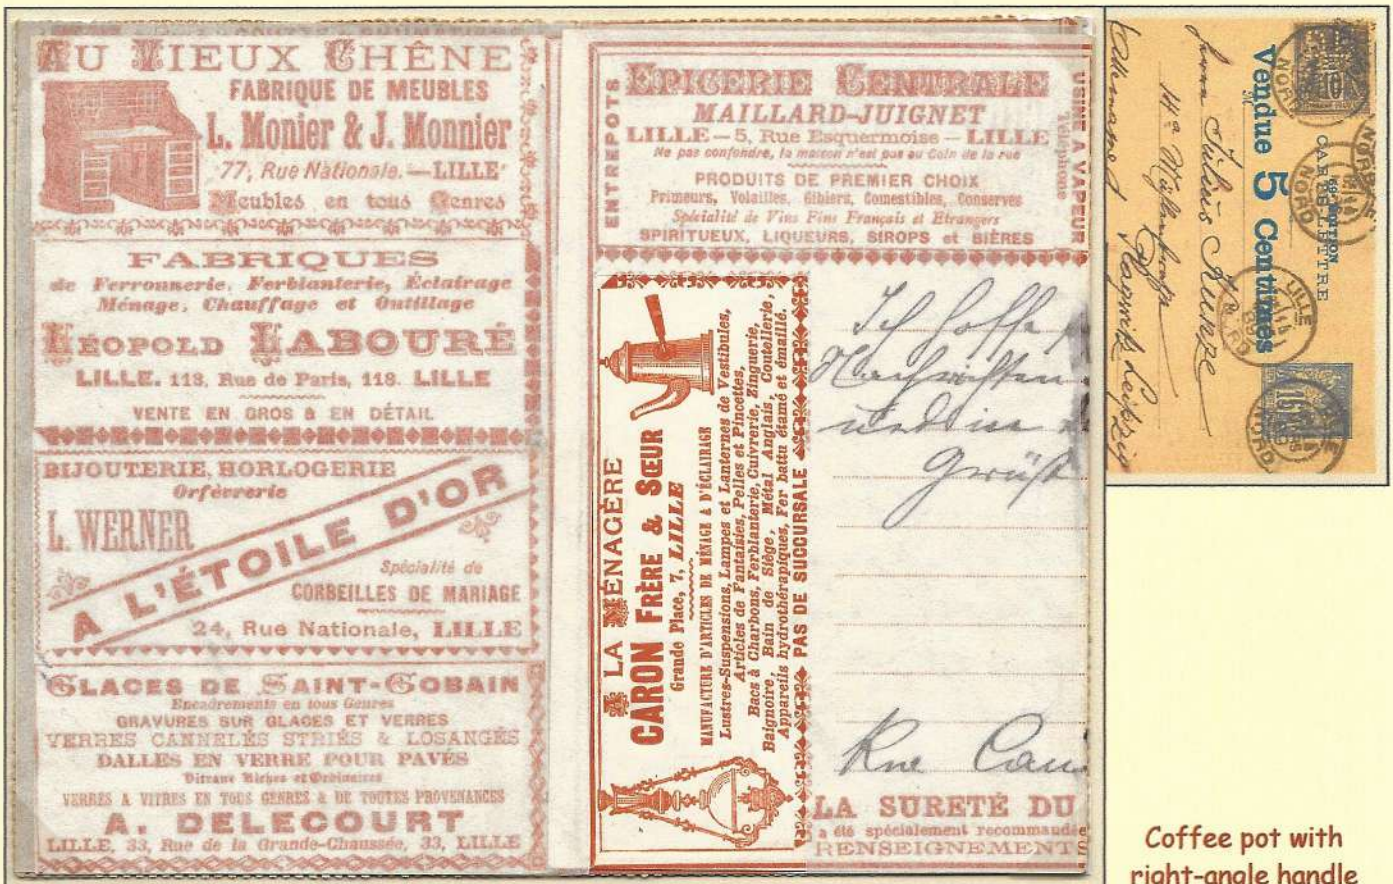 AU VIEUX CHÊNE
FABRIQUE DE MEUBLES
L. Monier & J. Monnier
77, Rue Nationale. — LILLE
Meubles en tous Genres
FABRIQUES
de Ferronnerie, Ferblanterie, Éclairage
Ménage, Chauffage et Outillage
LÉOPOLD LABOURÉ
LILLE. 118, Rue de Paris, 118. LILLE
VENTE EN GROS & EN DÉTAIL
BIJOUTERIE, HORLOGERIE
Orfèvrerie
L. WERNER
A L'ÉTOILE D'OR
Spécialité de
CORBEILLES DE MARIAGE
24, Rue Nationale, LILLE
GLACES DE SAINT-GOBAIN
Encadrements en tous Genres
GRAVURES SUR GLACES ET VERRES
VERRES CANNELÉS STRIÉS & LOSANGÉS
DALLES EN VERRE POUR PAVÉS
Vitraux Riches et Ordinaires
VERRES A VITRES EN TOUS GENRES & DE TOUTES PROVENANCES
A. DELECOURT
LILLE, 33, Rue de la Grande-Chaussée, 33, LILLE
ENTREPOTS
EPICERIE CENTRALE
MAILLARD-JUIGNET
LILLE — 5, Rue Esquermoise — LILLE
Ne pas confondre, la maison n'est pas au Coin de la rue
PRODUITS DE PREMIER CHOIX
Primeurs, Volailles, Gibiers, Comestibles, Conserves
Spécialité de Vins Fins Français et Etrangers
SPIRITUEUX, LIQUEURS, SIROPS et BIÈRES
USINE A VAPEUR
Téléphone
A LA MÉNAGÈRE
CARON FRÈRE & SŒUR
Grande Place, 7, LILLE
MANUFACTURE D'ARTICLES DE MÉNAGE & D'ÉCLAIRAGE
Lustres-Suspensions, Lampes et Lanternes de Vestibules,
Articles de Fantaisies, Pelles et Pincettes,
Bacs à Charbons, Ferblanterie, Cuivrerie, Zinguerie,
Baignoire, Bain de Siège, Métal Anglais, Coutellerie,
Appareils hydrothérapiques, Fer battu étamé et émaillé.
PAS DE SUCCURSALE
Ich hoffe
Nachrichten
und in
Grüßt
Rue Cau
LA SURETÉ DU
a été spécialement recommandée
RENSEIGNEMENTS
CARTE LETTRE
Vendue 5 Centimes
LILLE
NORD
15
Julius
Plagwitz Leipzig
Allemagne
Coffee pot with
right-angle handle